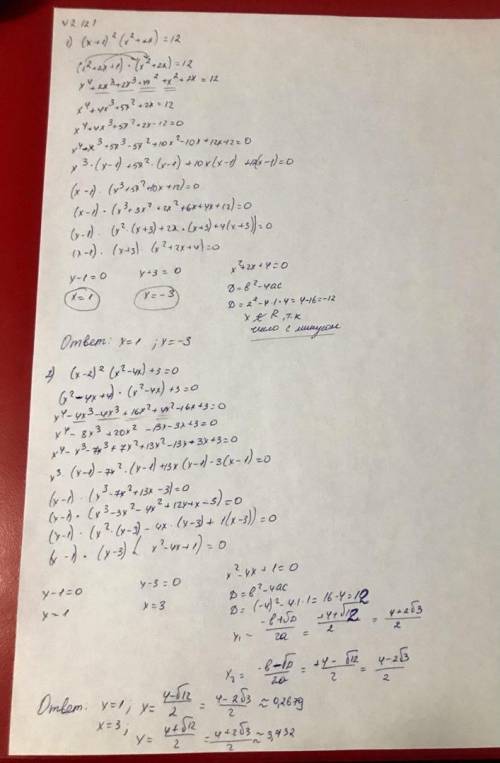 √2.121
1) (x+1)² (x²+2x)=12
(x²+2x+1)·(x²+2x)=12
x⁴+2x³+2x³+4x²+x²+2x=12
x⁴+4x³+5x²+2x=12
x⁴+4x³+5x²+2x-12=0
x⁴-x³+5x³-5x²+10x²-10x+12x-12=0
x³·(x-1)+5x²·(x-1)+10x(x-1)+12(x-1)=0
(x-1)·(x³+5x²+10x+12)=0
(x-1)·(x³+3x²+2x²+6x+4x+12)=0
(x-1)·(x²·(x+3)+2x·(x+3)+4(x+3))=0
(x-1)·(x+3)·(x²+2x+4)=0
x-1=0 x+3=0 x²+2x+4=0
x=1 x=-3 D=b²-4ac
D=2²-4·1·4=4-16=-12
x ∉ R, т.к
число с минусом
Ответ: x=1 ; x=-3
2) (x-2)² (x²-4x)+3=0
(x²-4x+4)·(x²-4x)+3=0
x⁴-4x³-4x³+16x²+4x²-16x+3=0
x⁴-8x³+20x²-13x-3x+3=0
x⁴-x³-7x³+7x²+13x²-13x+3x+3=0
x³·(x-1)-7x²·(x-1)+13x(x-1)-3(x-1)=0
(x-1)·(x³-7x²+13x-3)=0
(x-1)·(x³-3x²-4x²+12x+x-3)=0
(x-1)·(x²·(x-3)-4x·(x-3)+1(x-3))=0
(x-1)·(x-3)(x²-4x+1)=0
x-1=0 x-3=0 x²-4x+1=0
x=1 x=3 D=b²-4ac
D=(-4)²-4·1·1=16-4=12
x₁=\frac{-b+√D}{2a}=\frac{+4+√12}{2}=\frac{4+2√3}{2}
x₂=\frac{-b-√D}{2a}=\frac{+4-√12}{2}=\frac{4-2√3}{2}
Ответ: x=1; x=\frac{4-√12}{2}=\frac{4-2√3}{2}≈0,2679
x=3; x=\frac{4+√12}{2}=\frac{4+2√3}{2}≈3,732